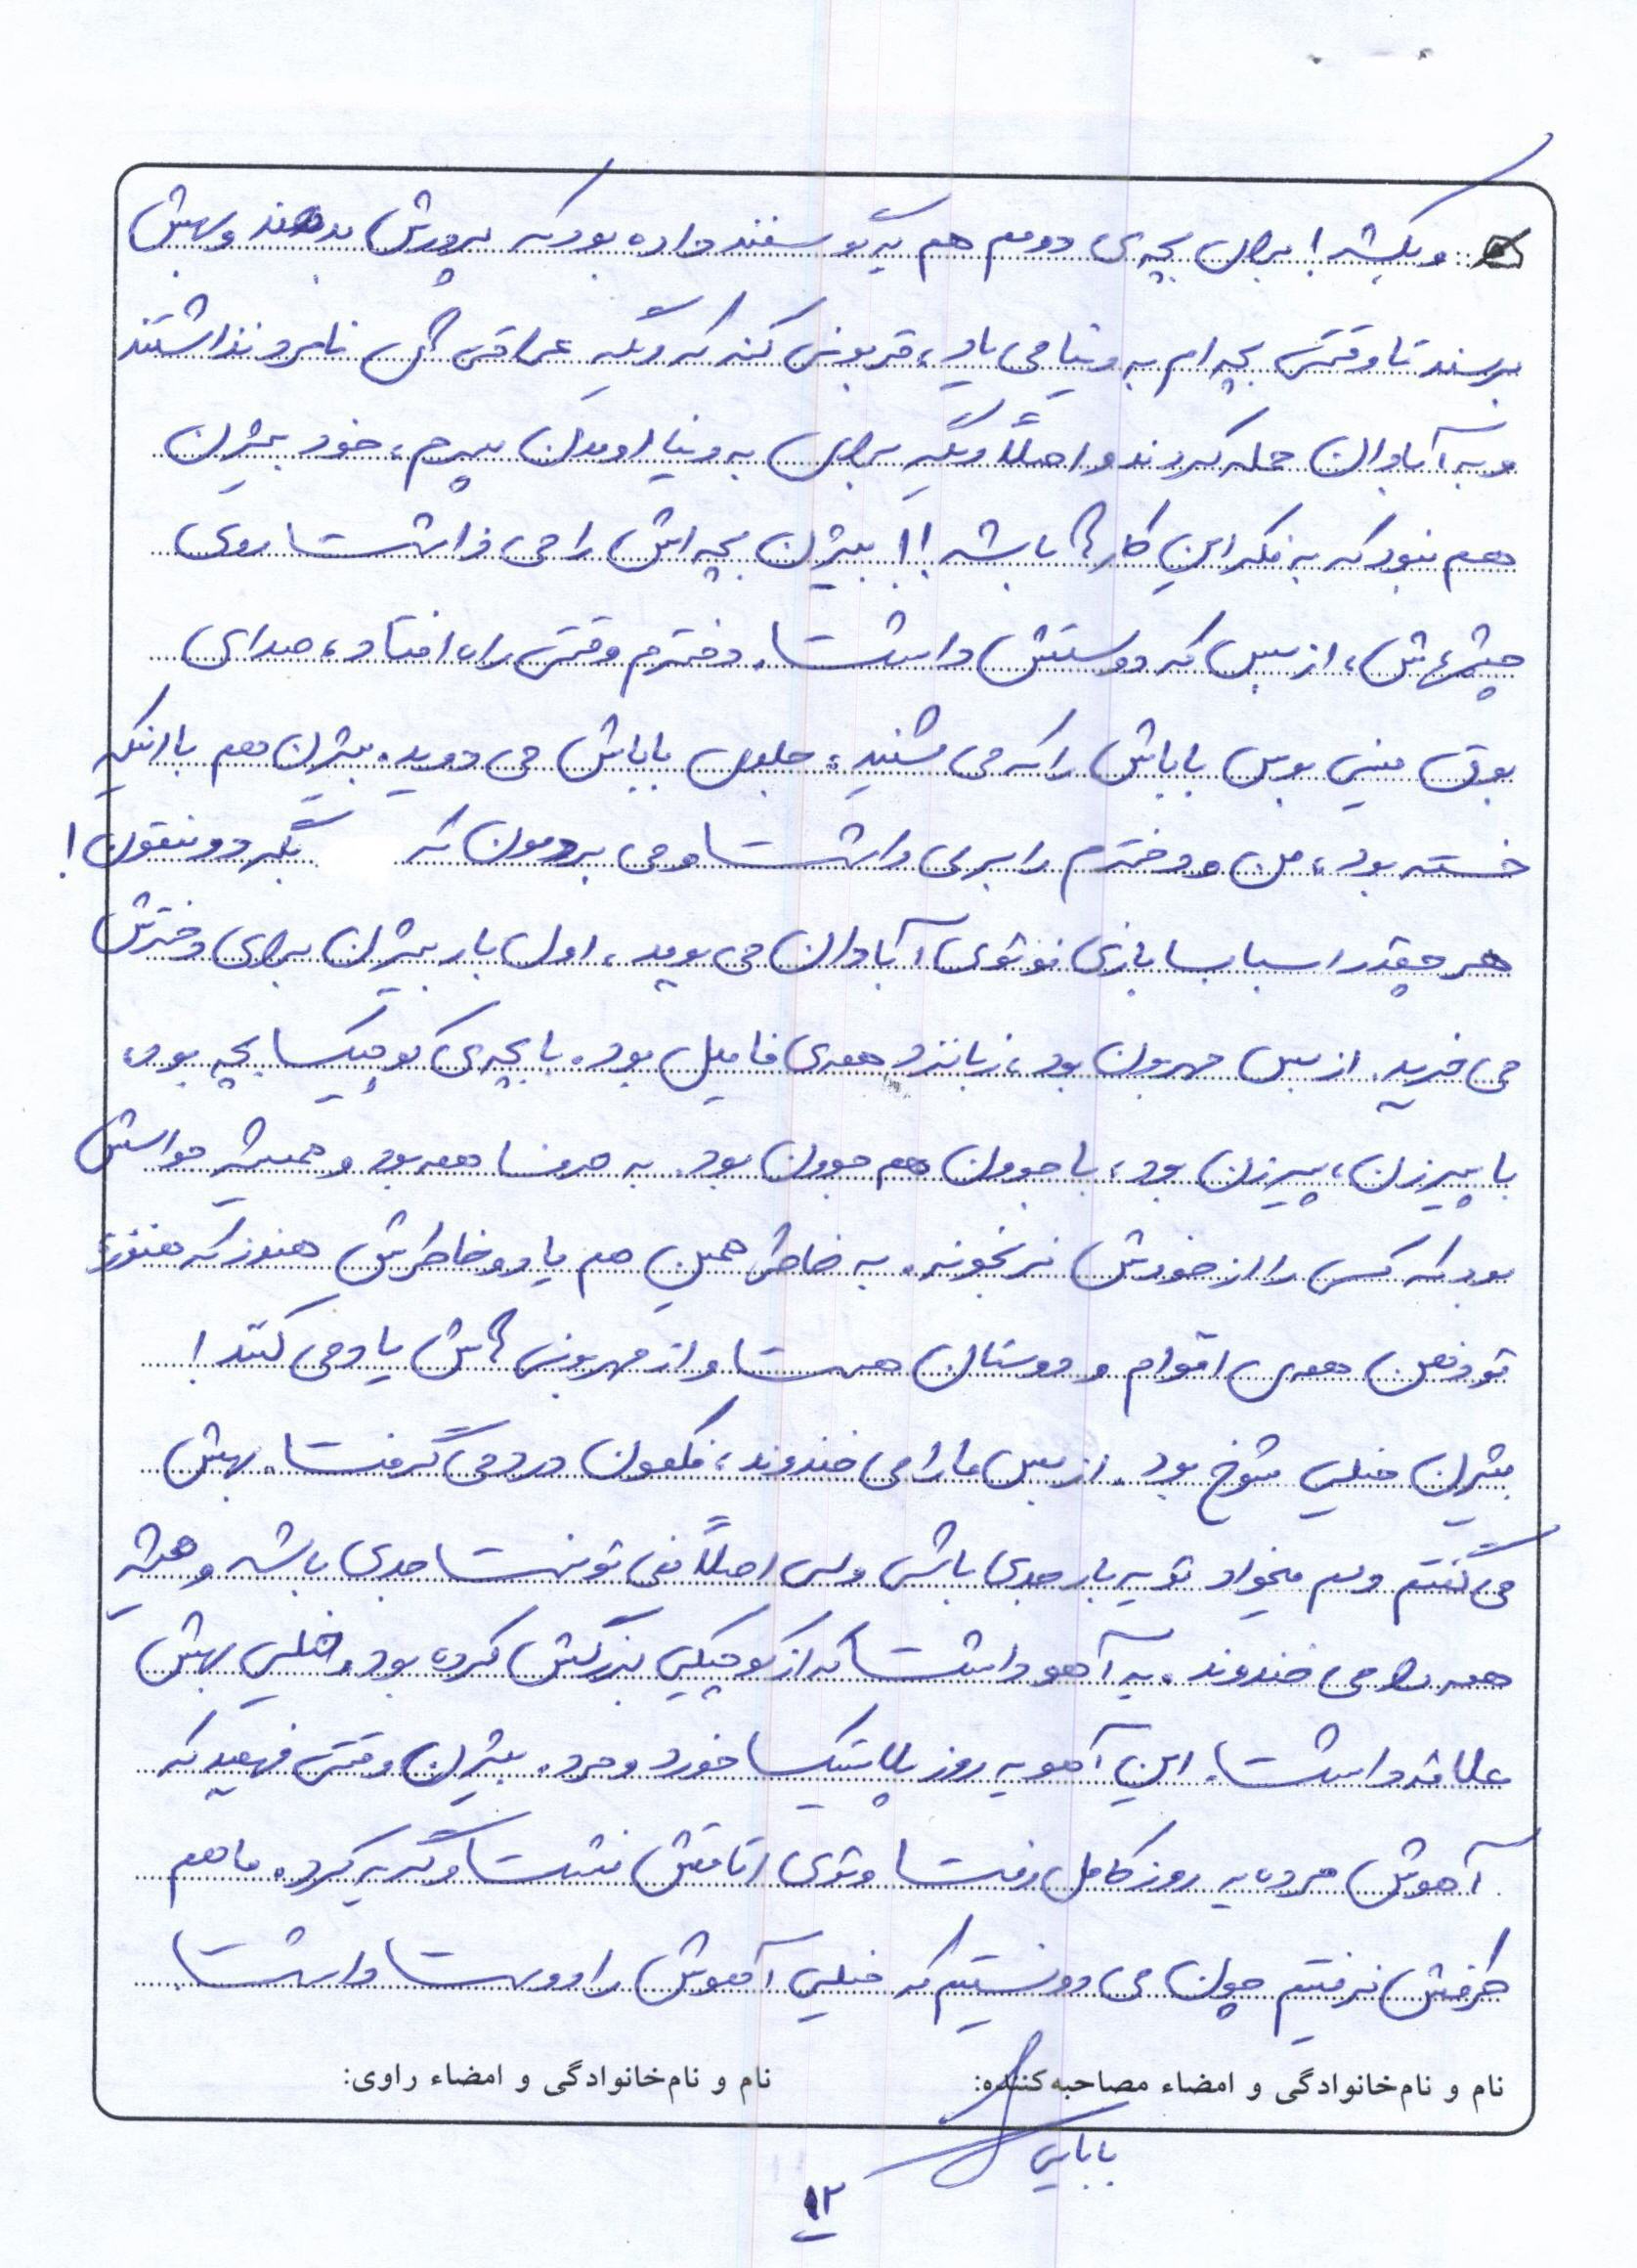 و بکشه! برای بچه‌ی دومم هم یه گوسفند داده بود که پرورش بدهند و بهش
برسند تا وقتی بچه‌ام به دنیا می یاد، قربونی کنه که دیگه عراقی های نامرد نذاشتند
و به آبادان حمله کردند و اصلاً دیگه برای به دنیا اومدن پسرم، خود بیژن
هم نبود که به فکر این کارها باشه!! بیژن بچه‌اش را می ذاشت روی
چشم‌هاش، از بس که دوستش داشت. دخترم وقتی راه افتاد، صدای
بوق مینی بوس باباش را که می شنید، جلوی باباش می دوید. بیژن هم با اینکه
خسته بود، من و دخترم را برمی داشت و می بردمون که بگردونتمون!
هر چقدر اسباب بازی نو توی آبادان می یومد، اول بار بیژن برای دخترش
می خرید. از بس مهربون بود، زبانزد همه‌ی فامیل بود. با بچه‌ی کوچیک بچه بود،
با پیرزن، پیرزن بود، با جوون هم جوون بود. به حرف همه بود و همیشه حواسش
بود که کسی را از خودش نرنجونه. به خاطر همین هم یاد و خاطرش هنوز که هنوزه
تو ذهن همه‌ی اقوام و دوستان هست و از مهربونی هاش یاد می کنند!
بیژن خیلی شوخ بود. از بس ما را می خندوند، فکمون درد می گرفت. بهش
می گفتم دلم میخواد تو یه بار جدی باشی ولی اصلاً نمی تونست جدی باشه و همیشه
همه را می خندوند. یه آهو داشت که از کوچیکی بزرگش کرده بود. خیلی بهش
علاقه داشت. این آهو یه روز پلاستیک خورد و مرد. بیژن وقتی فهمید که
آهوش مرده یه روز کامل رفت و توی اتاقش نشست و گریه کرد. ما هم
طرفش نرفتیم چون می دونستیم که خیلی آهوش را دوست داشت
نام و نام‌خانوادگی و امضاء مصاحبه‌کننده: نام و نام‌خانوادگی و امضاء راوی:
بابایی
۱۲